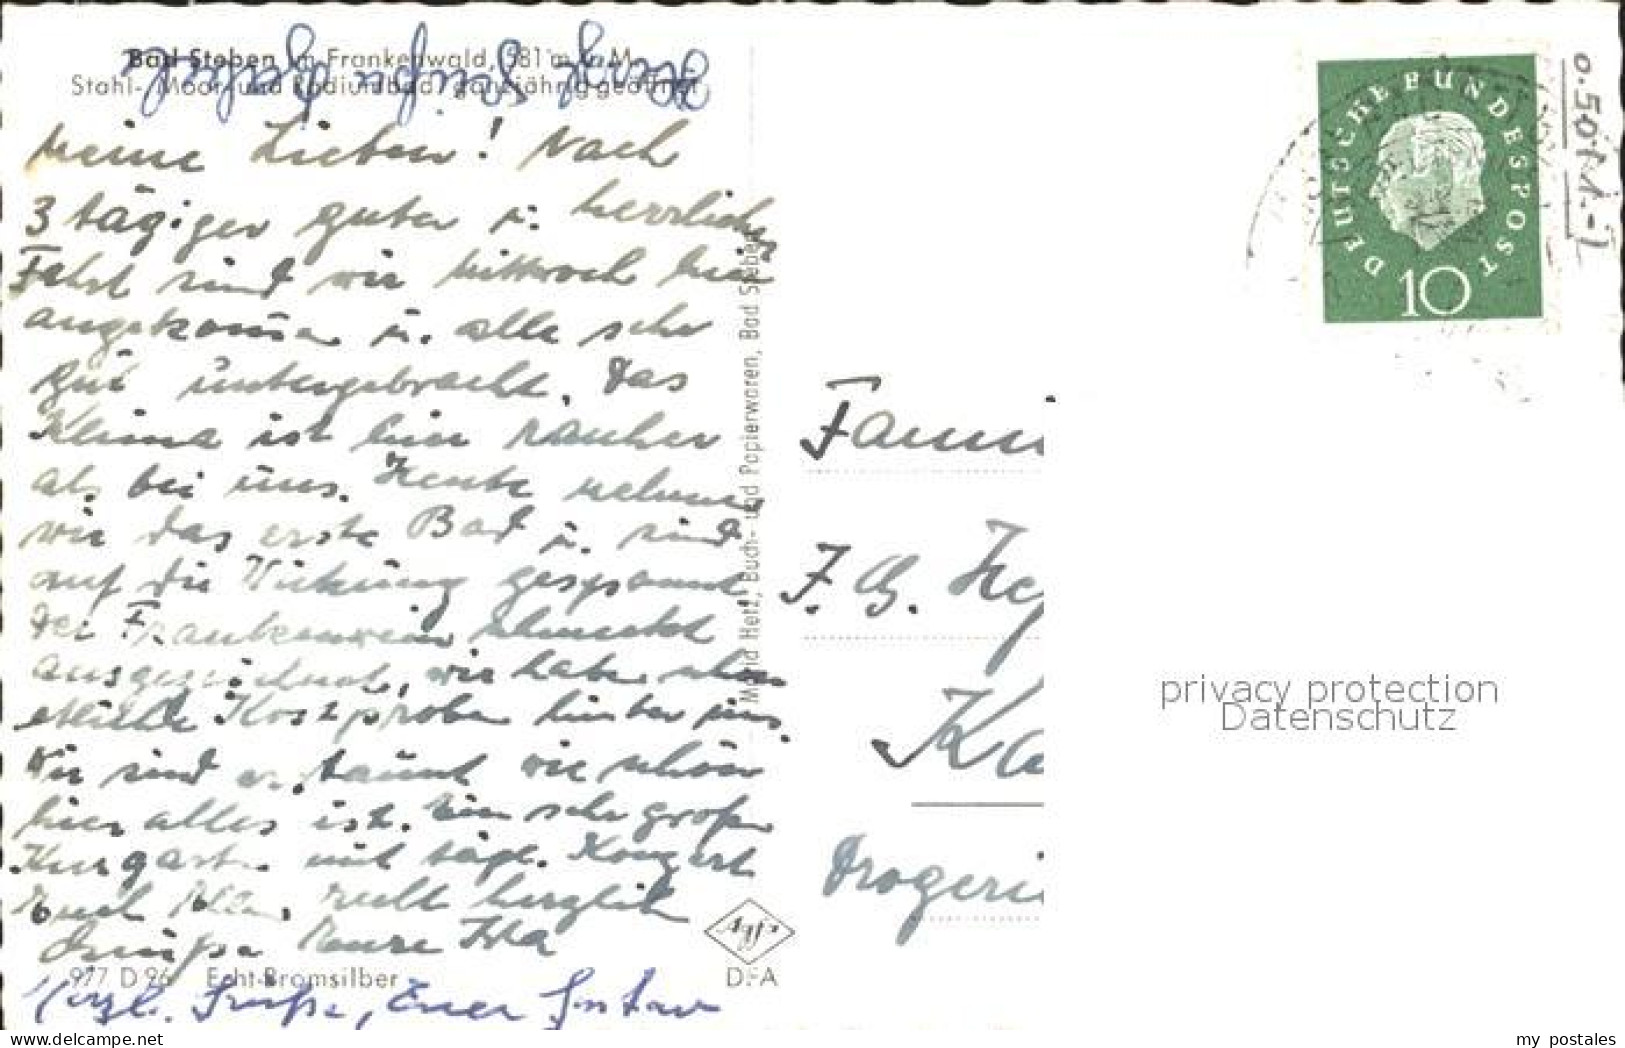 Bad Steben im Frankenwald, 581 m ü. M.
Stahl-, Moor- und Radiumbad, ganzjährig geöffnet
Herzl. Grüße
Meine Lieben! Nach
3 tägiger guter u. herrlicher
Fahrt sind wir Mittwoch hier
angekom̄en u. alle sehr
gut untergebracht. Das
Klima ist hier rauher
als bei uns. Heute nehmen
wir das erste Bad u. sind
auf die Wirkung gespannt
Der Frankenwein schmeckt
ausgezeichnet, wir haben schon
etliche Kostproben hinter uns.
Wir sind erstaunt wie schön
hier alles ist. Ein sehr großer
Kurgarten mit tägl. Konzert
Euch Allen, recht herzlich
Grüße Eure
Herzl. Grüße, Euer Gustav
977 D 96 Echt-Bromsilber
Agfa
DFA
Hertz, Buch- und Papierwaren, Bad Steben
DEUTSCHE BUNDESPOST
10
0.50
Fami
J. G. He
Ka
Drogeri
privacy protection
Datenschutz
www.delcampe.net
my_postales